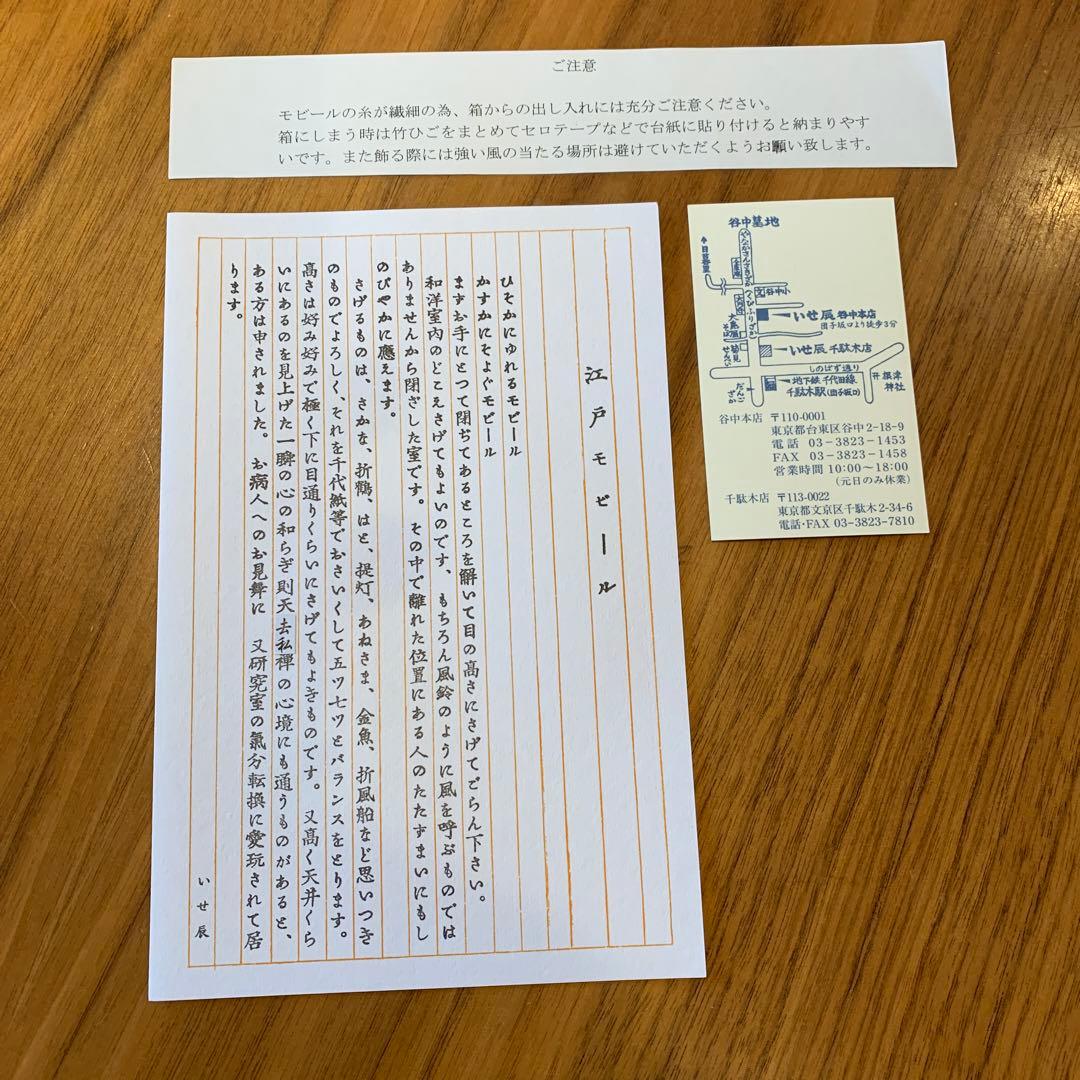 ご注意
モビールの糸が繊細の為、箱からの出し入れには充分ご注意ください。
箱にしまう時は竹ひごをまとめてセロテープなどで台紙に貼り付けると納まりやす
いです。また飾る際には強い風の当たる場所は避けていただくようお願い致します。
江戸モビール
ひそかにゆれるモビール
かすかにそよぐモビール
まずお手にとつて閉ぢてあるところを解いて目の高さにさげてごらん下さい。
和洋室内のどこえさげてもよいのです、もちろん風鈴のように風を呼ぶものでは
ありませんから閉ざした室です。その中で離れた位置にある人のたたずまいにもし
のびやかに應えます。
さげるものは、さかな、折鶴、はと、提灯、あねさま、金魚、折風船など思いつき
のものでよろしく、それを千代紙等でおさいくして五ツ七ツとバランスをとります。
高さは好み好みで極く下に目通りくらいにさげてもよきものです。又高く天井くら
いにあるのを見上げた一瞬の心の和らぎ則天去私禅の心境にも通うものがあると、
ある方は申されました。お病人へのお見舞に 又研究室の氣分転換に愛玩されて居
ります。
いせ辰
谷中墓地
やなかさんさきざか
今日暮里
文谷中小
へびふりざか
いせ辰 谷中本店
団子坂口より徒歩3分
大島屋
そば
菊見
せんべい
いせ辰 千駄木店
しのばず通り
地下鉄 千代田線
千駄木駅(団子坂口)
根津
神社
だんござか
谷中本店 〒110-0001
東京都台東区谷中2-18-9
電話 03-3823-1453
FAX 03-3823-1458
営業時間 10:00～18:00
(元日のみ休業)
千駄木店 〒113-0022
東京都文京区千駄木2-34-6
電話・FAX 03-3823-7810